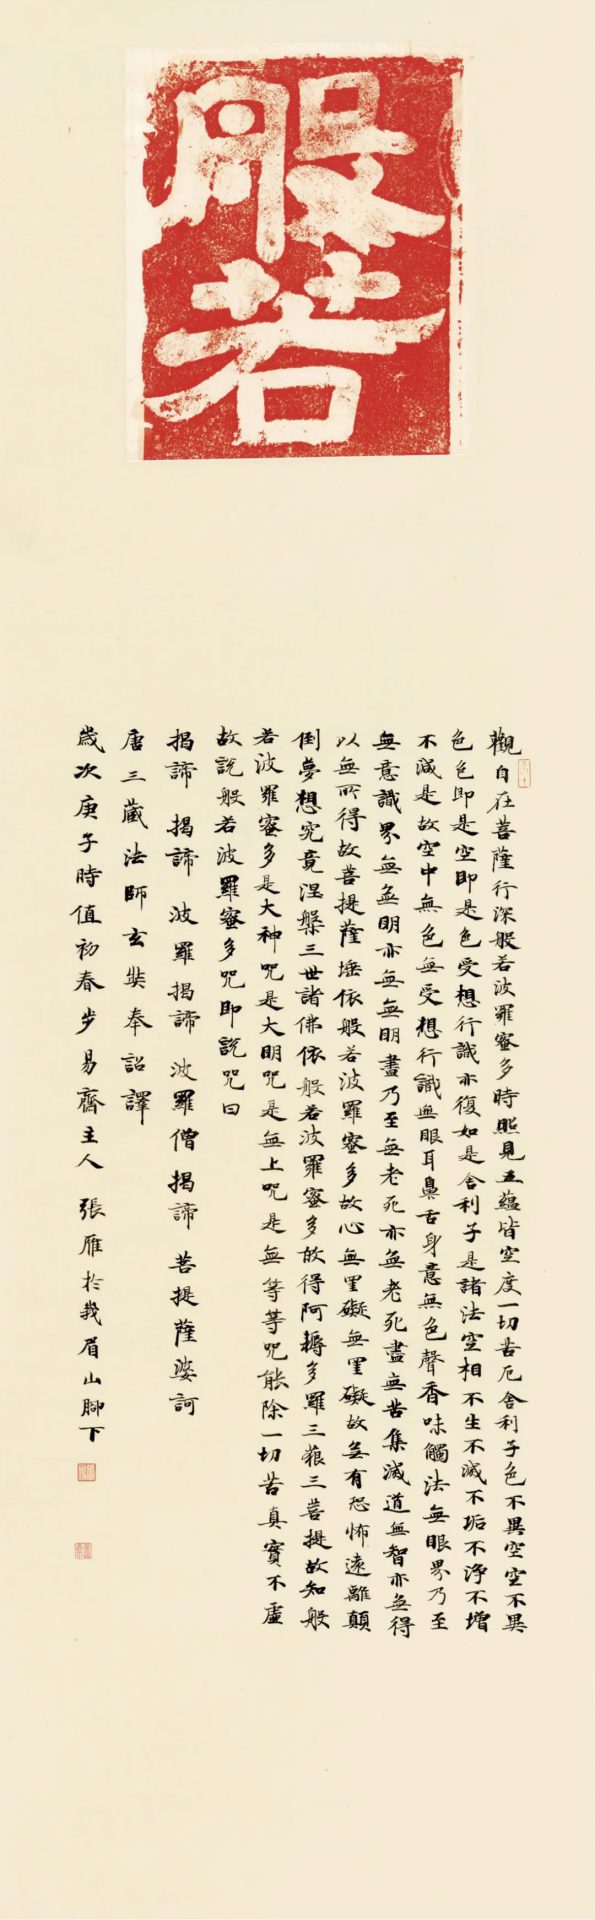 般若
觀自在菩薩行深般若波羅蜜多時照見五蘊皆空度一切苦厄舍利子色不異空空不異
色色即是空即是色受想行識亦復如是舍利子是諸法空相不生不滅不垢不淨不增
不減是故空中無色無受想行識無眼耳鼻舌身意無色聲香味觸法無眼界乃至
無意識界無無明亦無無明盡乃至無老死亦無老死盡無苦集滅道無智亦無得
以無所得故菩提薩埵依般若波羅蜜多故心無罣礙無罣礙故無有恐怖遠離顛
倒夢想究竟涅槃三世諸佛依般若波羅蜜多故得阿耨多羅三藐三菩提故知般
若波羅蜜多是大神咒是大明咒是無上咒是無等等咒能除一切苦真實不虛
故說般若波羅蜜多咒即說咒曰
揭諦揭諦 波羅揭諦 波羅僧揭諦 菩提薩婆訶
唐三藏法師玄奘奉詔譯
歲次庚子時值初春步易齋主人 張雁於峩眉山腳下